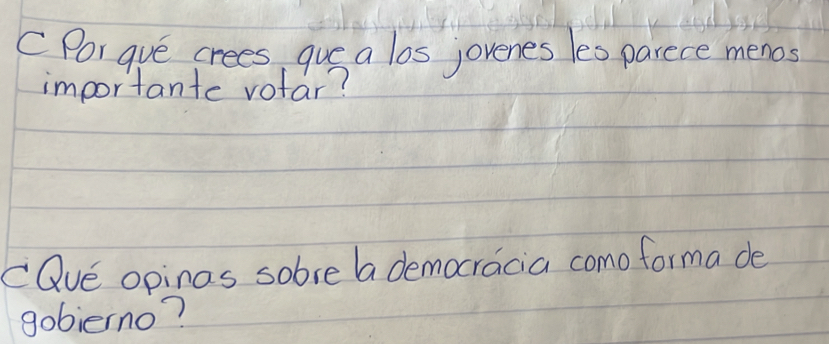 ¿Por qué crees que a los jovenes les parece menos
importante votar?
¿Qué opinas sobre la democrácia como forma de
gobierno?